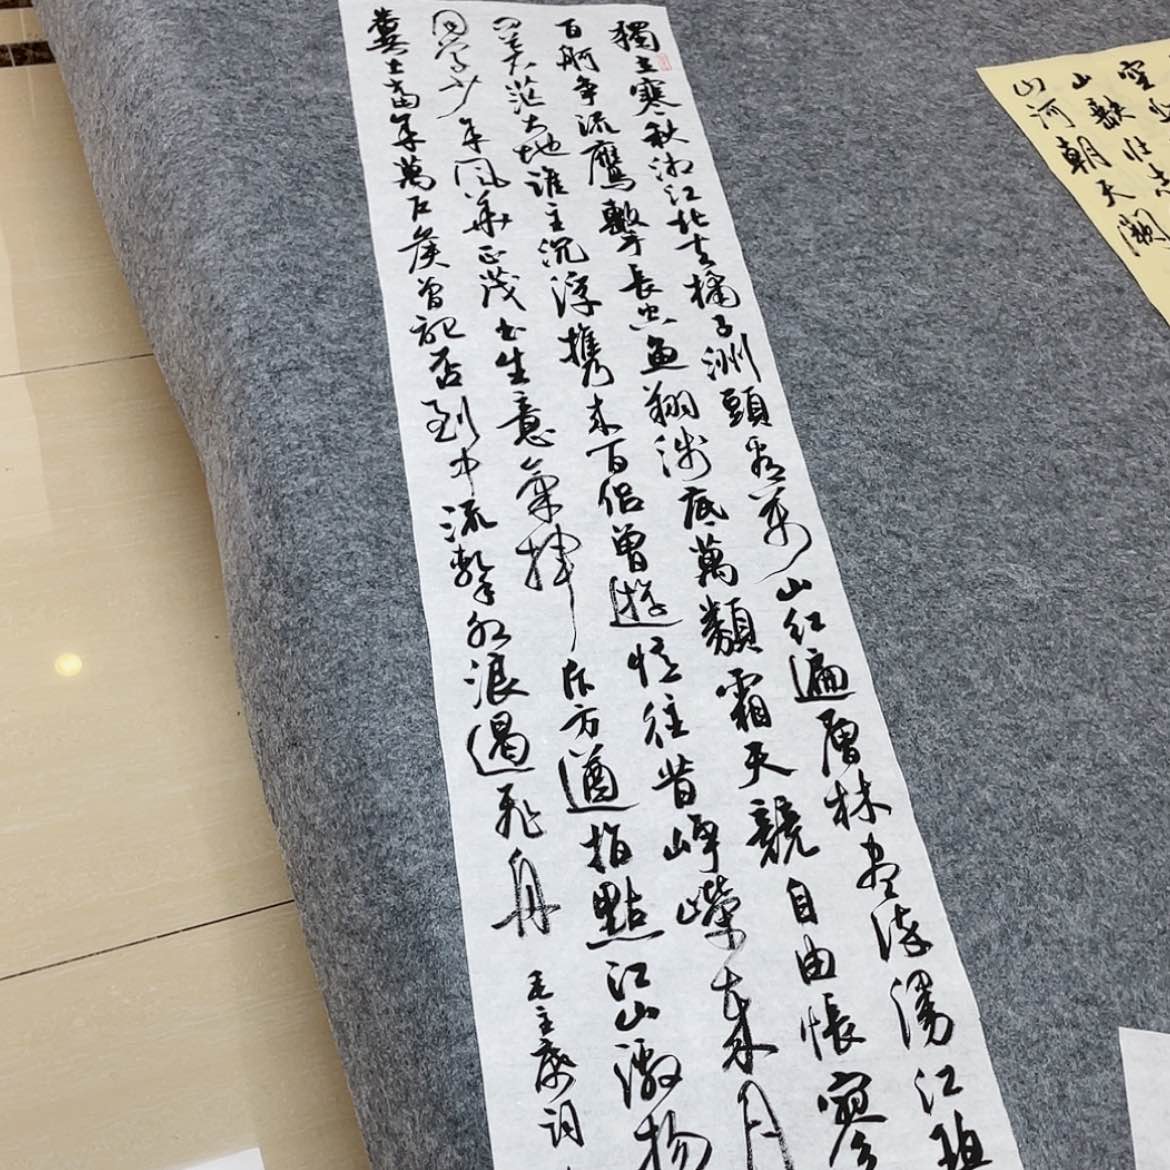 獨立寒秋湘江北去橘子洲頭看萬山紅遍層林盡染漫江碧
百舸争流鷹擊長空魚翔浅底萬類霜天競自由悵寥
問蒼茫大地誰主沉浮攜來百侶曾遊憶往昔崢嶸歲月
同學少年風華正茂書生意氣揮斥方遒指點江山激揚
糞土當年萬戶侯曾記否到中流擊水浪遏飛舟
毛主席詞
空悲
山缺壮志
山河朝天闕